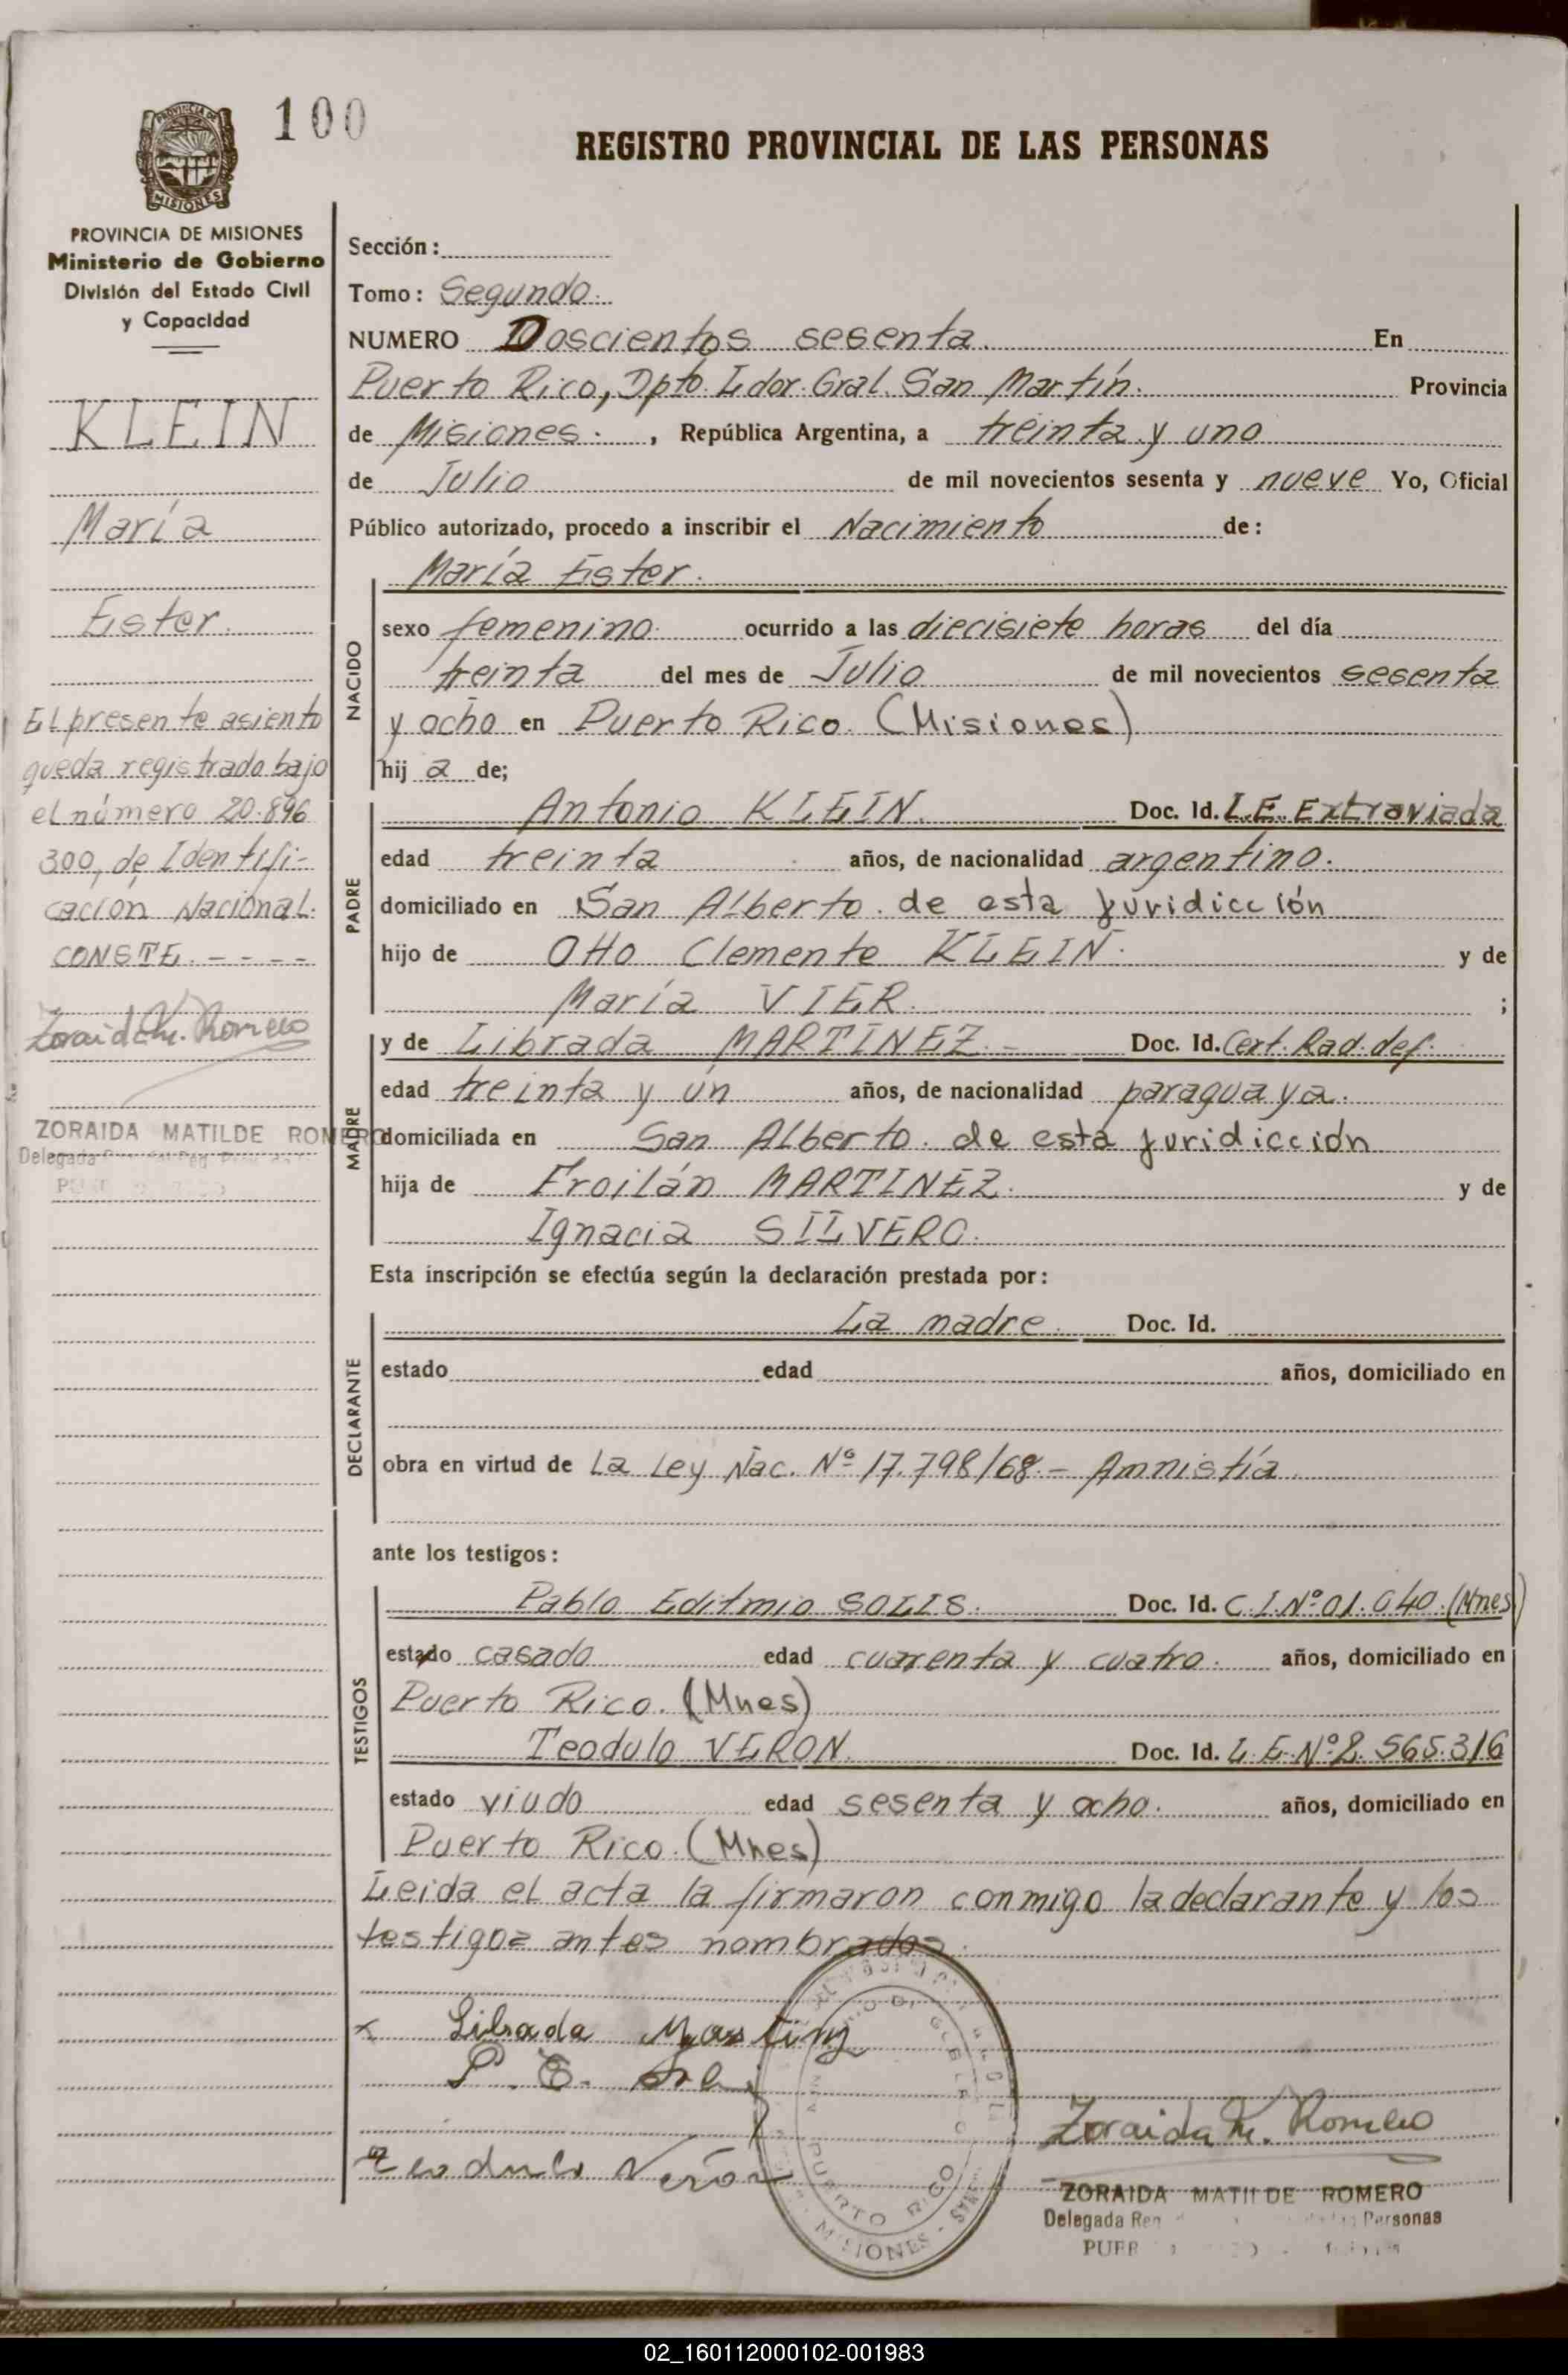 100
REGISTRO PROVINCIAL DE LAS PERSONAS
PROVINCIA DE MISIONES
Ministerio de Gobierno
División del Estado Civil
y Capacidad
KLEIN
María
Ester.
El presente asiento
queda registrado bajo
el número 20.896
300, de Identifi-
cación Nacional.
CONSTE. - - - -
Zoraida M. Romero
ZORAIDA MATILDE ROMERO
Delegada
Sección:
Tomo: Segundo.
NUMERO Doscientos sesenta. En
Puerto Rico, Dpto. Ldor. Gral. San Martín. Provincia
de Misiones. , República Argentina, a treinta y uno
de Julio de mil novecientos sesenta y nueve Yo, Oficial
Público autorizado, procedo a inscribir el Nacimiento de:
NACIDO
María Ester.
sexo femenino. ocurrido a las diecisiete horas del día
treinta del mes de Julio de mil novecientos sesenta
y ocho en Puerto Rico. (Misiones)
hij a de;
PADRE
Antonio KLEIN. Doc. Id. L.E. Extraviada
edad treinta años, de nacionalidad argentino.
domiciliado en San Alberto. de esta juridicción
hijo de Otto Clemente KLEIN. y de
María VIER. ;
MADRE
y de Librada MARTINEZ. - Doc. Id. Cert. Rad. def.
edad treinta y un años, de nacionalidad paraguaya.
domiciliada en San Alberto. de esta juridicción
hija de Froilán MARTINEZ. y de
Ignacia SILVERO.
Esta inscripción se efectúa según la declaración prestada por:
DECLARANTE
La madre. Doc. Id.
estado edad años, domiciliado en
obra en virtud de La Ley Nac. Nº 17.798/68.- Amnistía
ante los testigos:
TESTIGOS
Pablo Editmio SOLIS. Doc. Id. C.I.Nº 01.040.(Mnes)
estado casado edad cuarenta y cuatro. años, domiciliado en
Puerto Rico. (Mnes)
Teodulo VERON. Doc. Id. L.E.Nº 2.565.316
estado viudo edad sesenta y ocho. años, domiciliado en
Puerto Rico. (Mnes)
Leida el acta la firmaron conmigo la declarante y los
testigos antes nombrados.
x Librada Martinz
P. E.
Teodulo Verón
PUERTO RICO
MISIONES
Zoraida M. Romero
ZORAIDA MATILDE ROMERO
Delegada Personas
02_160112000102-001983